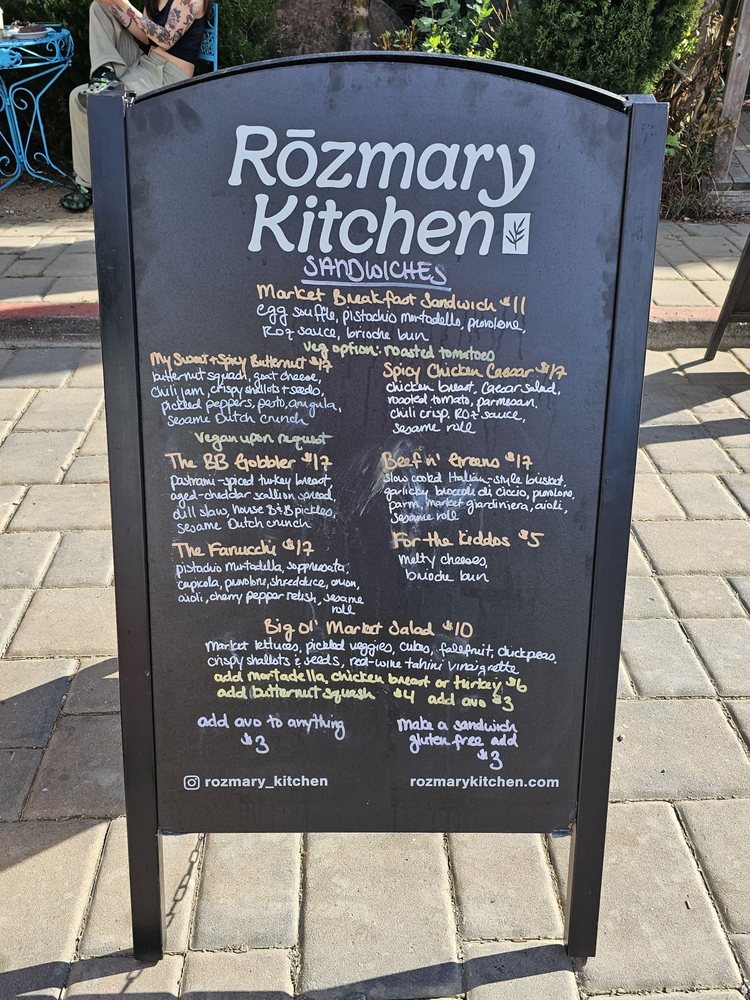 Rōzmary
Kitchen
SANDWICHES
Market Breakfast Sandwich $11
egg souffle, pistachio mortadella, provolone,
ROZ sauce, brioche bun
veg option: roasted tomatoes
My Sweet + Spicy Butternut $17
butternut squash, goat cheese,
chili jam, crispy shallots + seeds,
pickled peppers, pesto, arugula,
sesame Dutch crunch
vegan upon request
Spicy Chicken Caesar $17
chicken breast, Caesar salad,
roasted tomato, parmesan,
chili crisp, ROZ sauce,
sesame roll
The BB Gobbler $17
pastrami-spiced turkey breast,
aged-cheddar scallion spread,
dill slaw, house B&B pickles,
sesame Dutch crunch
Beef n' Greens $17
slow cooked Italian-style brisket,
garlicky broccoli di ciccio, provolone,
parm, market giardiniera, aioli,
sesame roll
The Fanucchi $17
pistachio mortadella, soppressata,
capicola, provolone, shredduce, onion,
aioli, cherry pepper relish, sesame
roll
For the kiddos $5
melty cheeses,
brioche bun
Big Ol' Market Salad $10
market lettuces, pickled veggies, cukes, falefruit, chickpeas,
crispy shallots & seeds, red-wine tahini vinaigrette
add mortadella, chicken breast or turkey $6
add butternut squash $4 add avo $3
add avo to anything
$3
make a sandwich
gluten free add
$3
rozmary_kitchen
rozmarykitchen.com